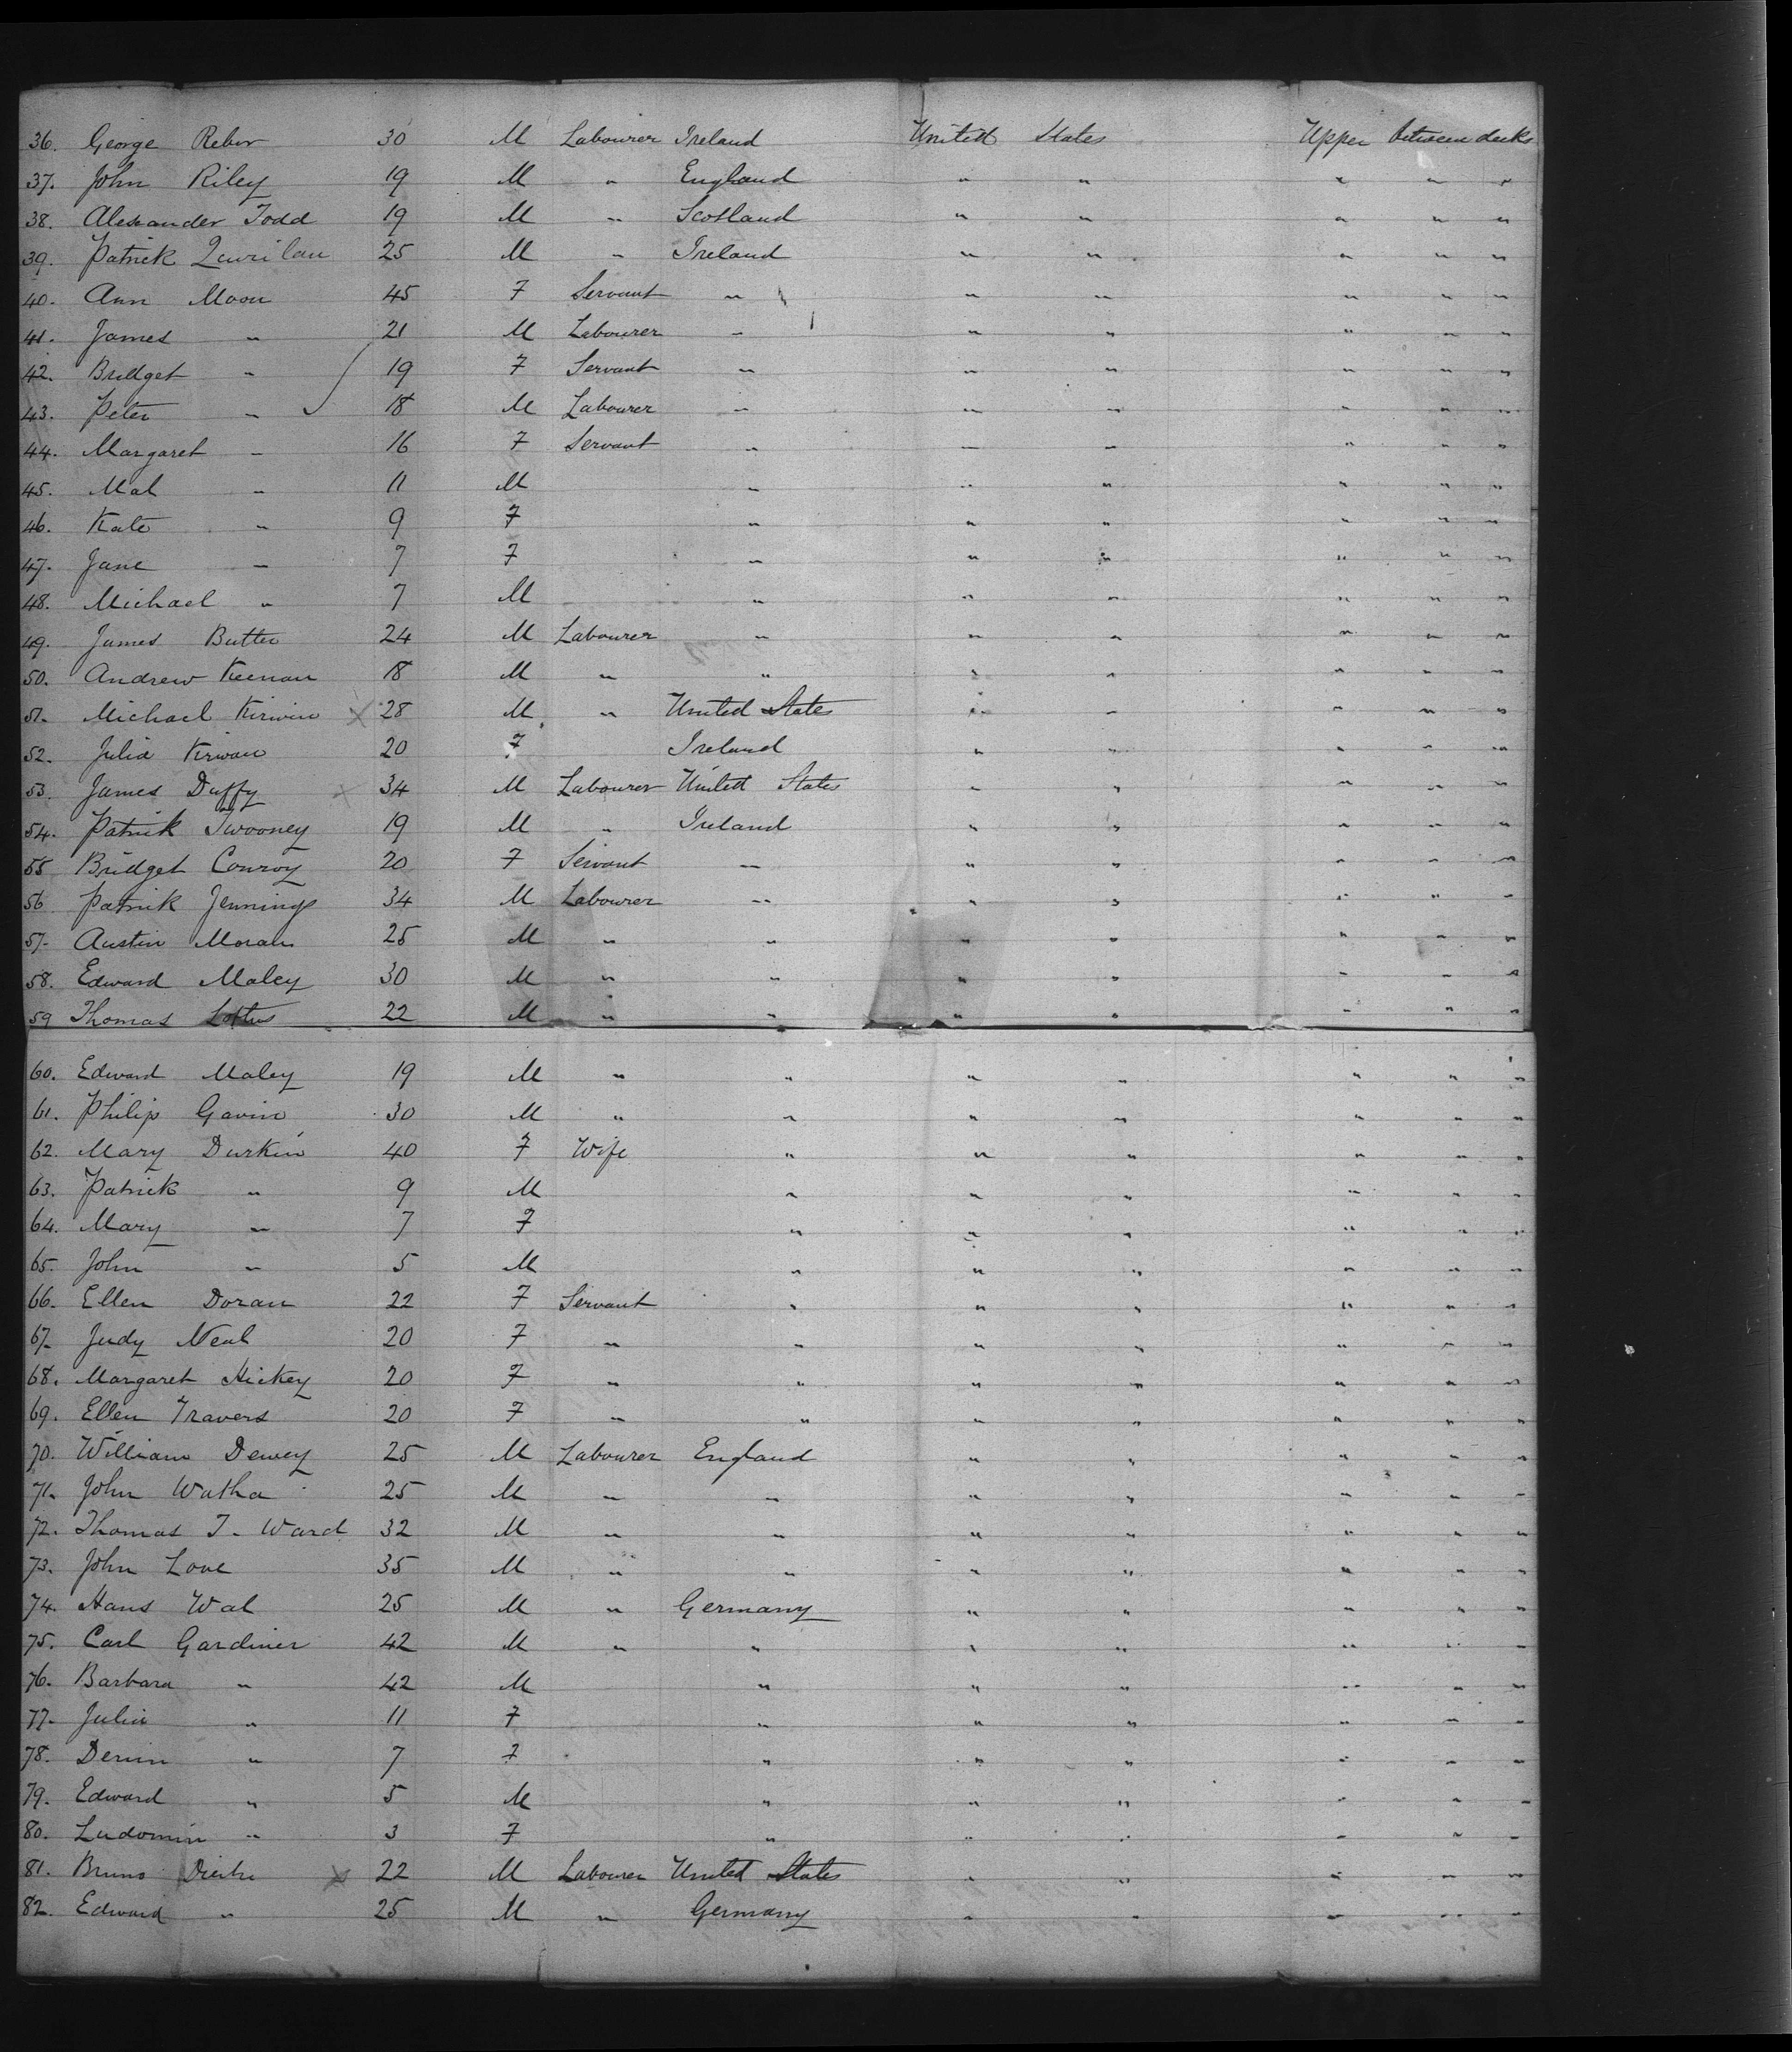 36. George Reber 30 M Labourer Ireland United States Upper between decks
37. John Riley 19 M " England " " " " "
38. Alexander Todd 19 M " Scotland " " " " "
39. Patrick 25 M " Ireland " " " " "
40. Ann Moon 45 F Servant " " " " " "
41. James " 21 M Labourer " " " " " "
42. Bridget " 19 F Servant " " " " " "
43. Peter " 18 M Labourer " " " " " "
44. Margaret " 16 F Servant " " " " " "
45. Mal " 11 M " " " " " "
46. Kate " 9 F " " " " " "
47. Jane " 7 F " " " " " "
48. Michael " 7 M " " " " " "
49. James Butter 24 M Labourer " " " " " "
50. Andrew Keenan 18 M " " " " " " "
51. Michael Kirwin X 28 M " United States " " " " "
52. Julia Kirwan 20 F Ireland " " " " "
53. James Duffy X 34 M Labourer United States " " " " "
54. Patrick Twooney 19 M " Ireland " " " " "
55 Bridget Conroy 20 F Servant " " " " " "
56 Patrick Jennings 34 M Labourer " " " " " "
57. Austin Moran 25 M " " " " " " "
58. Edward Maley 30 M " " " " " " "
59 Thomas Loftus 22 M " " " " " " "
60. Edward Maley 19 M " " " " " " "
61. Philip Gavin 30 M " " " " " " "
62. Mary Durkin 40 F Wife " " " " " "
63. Patrick " 9 M " " " " " "
64. Mary " 7 F " " " " " "
65. John " 5 M " " " " " "
66. Ellen Doran 22 F Servant " " " " " "
67. Judy Neal 20 F " " " " " " "
68. Margaret Hickey 20 F " " " " " " "
69. Ellen Travers 20 F " " " " " " "
70. William Dewey 25 M Labourer England " " " " "
71. John Watha 25 M " " " " " " "
72. Thomas T. Ward 32 M " " " " " " "
73. John Love 35 M " " " " " " "
74. Hans Wal 25 M " Germany " " " " "
75. Carl Gardiner 42 M " " " " " " "
76. Barbara " 42 M " " " " " "
77. Julia " 11 F " " " " " "
78. " 7 F " " " " " "
79. Edward " 5 M " " " " " "
80. Ludomin " 3 F " " " " " "
81. Bruno X 22 M Labourer United States " " " " "
82. Edward " 25 M " Germany " " " " "